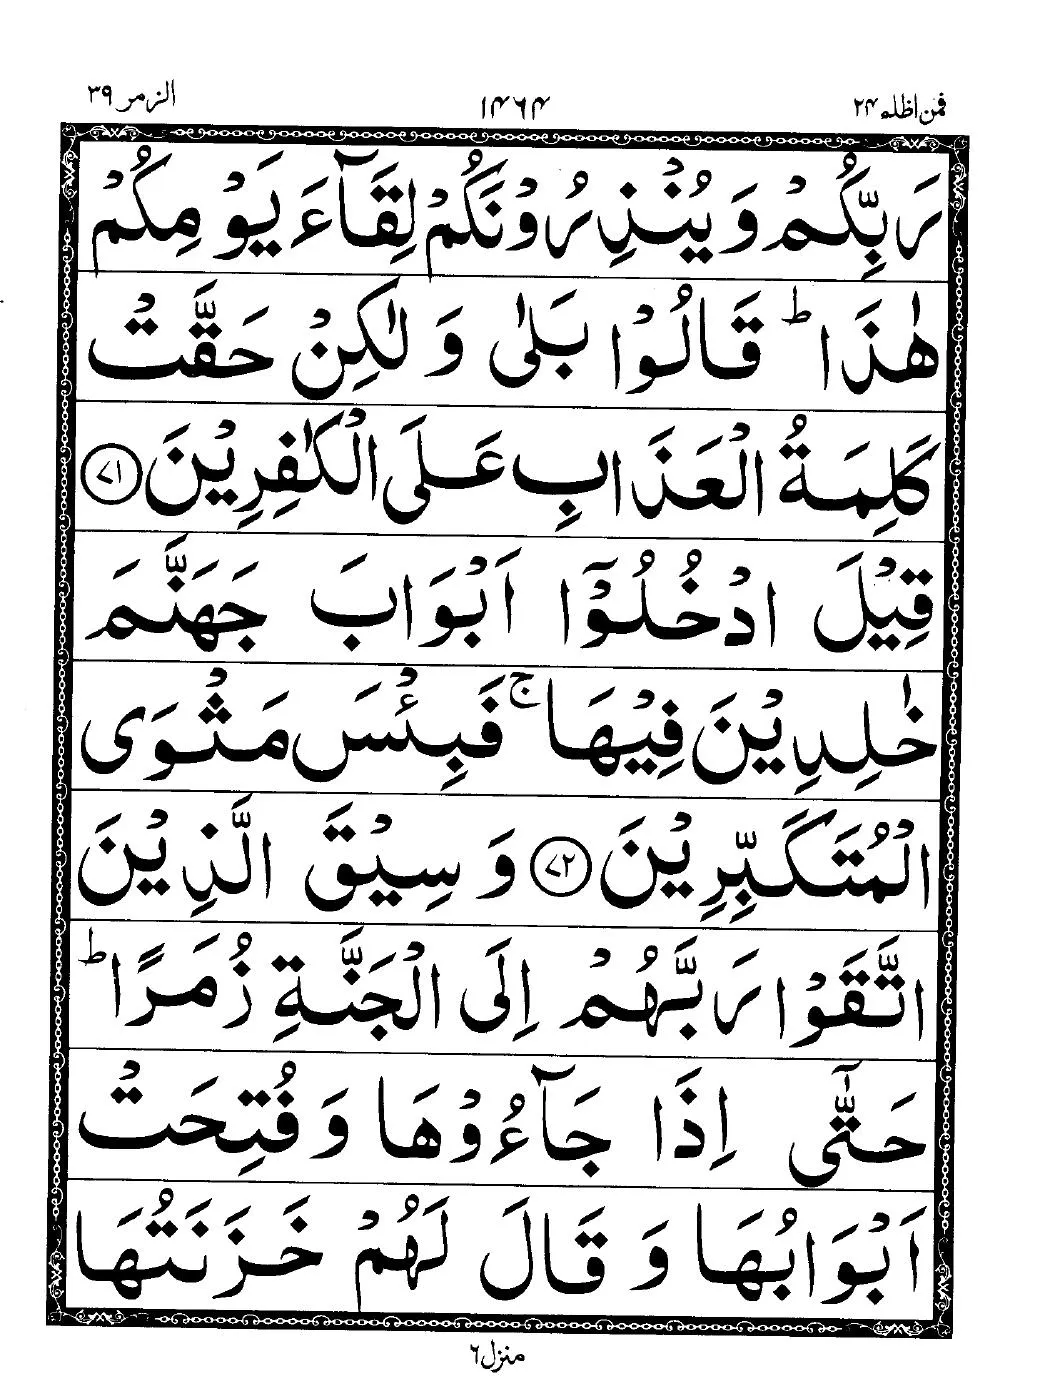 فمن اظلم ۲۴
۱۴۶۴
الزمر ۳۹
رَبِّكُمْ وَيُنْذِرُوْنَكُمْ لِقَآءَ يَوْمِكُمْ
هٰذَا ؕ قَالُوْا بَلٰى وَ لٰكِنْ حَقَّتْ
كَلِمَةُ الْعَذَابِ عَلَى الْكٰفِرِيْنَ ۷۱
قِيْلَ ادْخُلُوْٓا اَبْوَابَ جَهَنَّمَ
خٰلِدِيْنَ فِيْهَا ۚ فَبِئْسَ مَثْوَى
الْمُتَكَبِّرِيْنَ ۷۲ وَ سِيْقَ الَّذِيْنَ
اتَّقَوْا رَبَّهُمْ اِلَى الْجَنَّةِ زُمَرًا ؕ
حَتّٰٓى اِذَا جَآءُوْهَا وَ فُتِحَتْ
اَبْوَابُهَا وَ قَالَ لَهُمْ خَزَنَتُهَا
منزل ۶